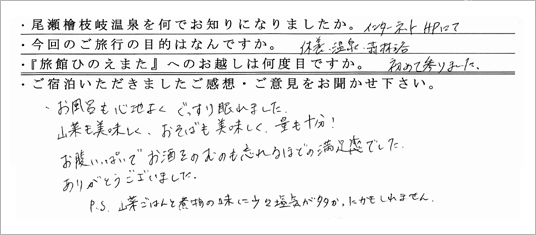 ・尾瀬檜枝岐温泉を何でお知りになりましたか。 インターネットHPにて
・今回のご旅行の目的はなんですか。 休養・温泉・森林浴
・『旅館ひのえまた』へのお越しは何度目ですか。 初めて参りました。
・ご宿泊いただきましたご感想・ご意見をお聞かせ下さい。
・お風呂も心地よく ぐっすり眠れました。
山菜も美味しく、おそばも美味しく、量も十分！
お腹いっぱいで お酒をのむのも忘れるほどの満足感でした。
ありがとうございました。
P.S. 山菜ごはんと煮物の味に少々塩気が多かったかもしれません。